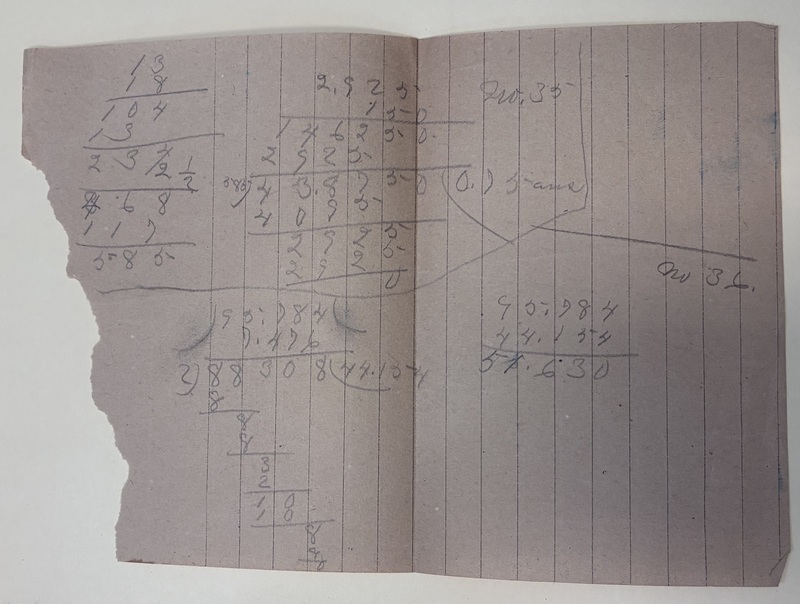 13
18
104
13
234
2 1/2
468
117
585
2.925
150
146250.
2925
585)438.750(0.75 ans
4095
2925
2925
0
No. 35
No 36.
95.784
7.476
2)88308(44.154
8
8
8
3
2
10
10
8
8
95.784
44.154
51.630